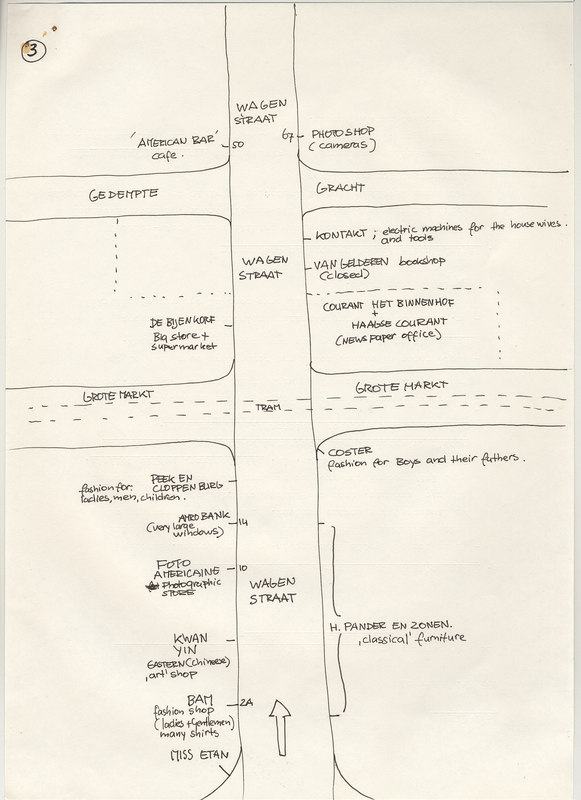 3
WAGEN
STRAAT
'AMERICAN BAR'
cafe.
50
67
PHOTOSHOP
(cameras)
GEDEMPTE
GRACHT
KONTAKT ; electric machines for the housewives.
and tools
WAGEN
STRAAT
VAN GELDEREN bookshop
(closed)
COURANT HET BINNENHOF
+
HAAGSE COURANT
(NEWSPAPER OFFICE)
DE BIJENKORF
Big store +
supermarket
GROTE MARKT
GROTE MARKT
TRAM
COSTER
fashion for Boys and their fathers.
fashion for:
ladies, men, children.
PEEK EN
CLOPPENBURG
AMRO BANK
(very large
windows)
14
FOTO
AMERICAINE
Photographic
STORE
10
WAGEN
STRAAT
H. PANDER EN ZONEN.
'classical' furniture
KWAN
YIN
EASTERN (Chinese)
'art' shop
BAM
fashion shop
(ladies + Gentlemen)
many shirts
2A
MISS ETAN